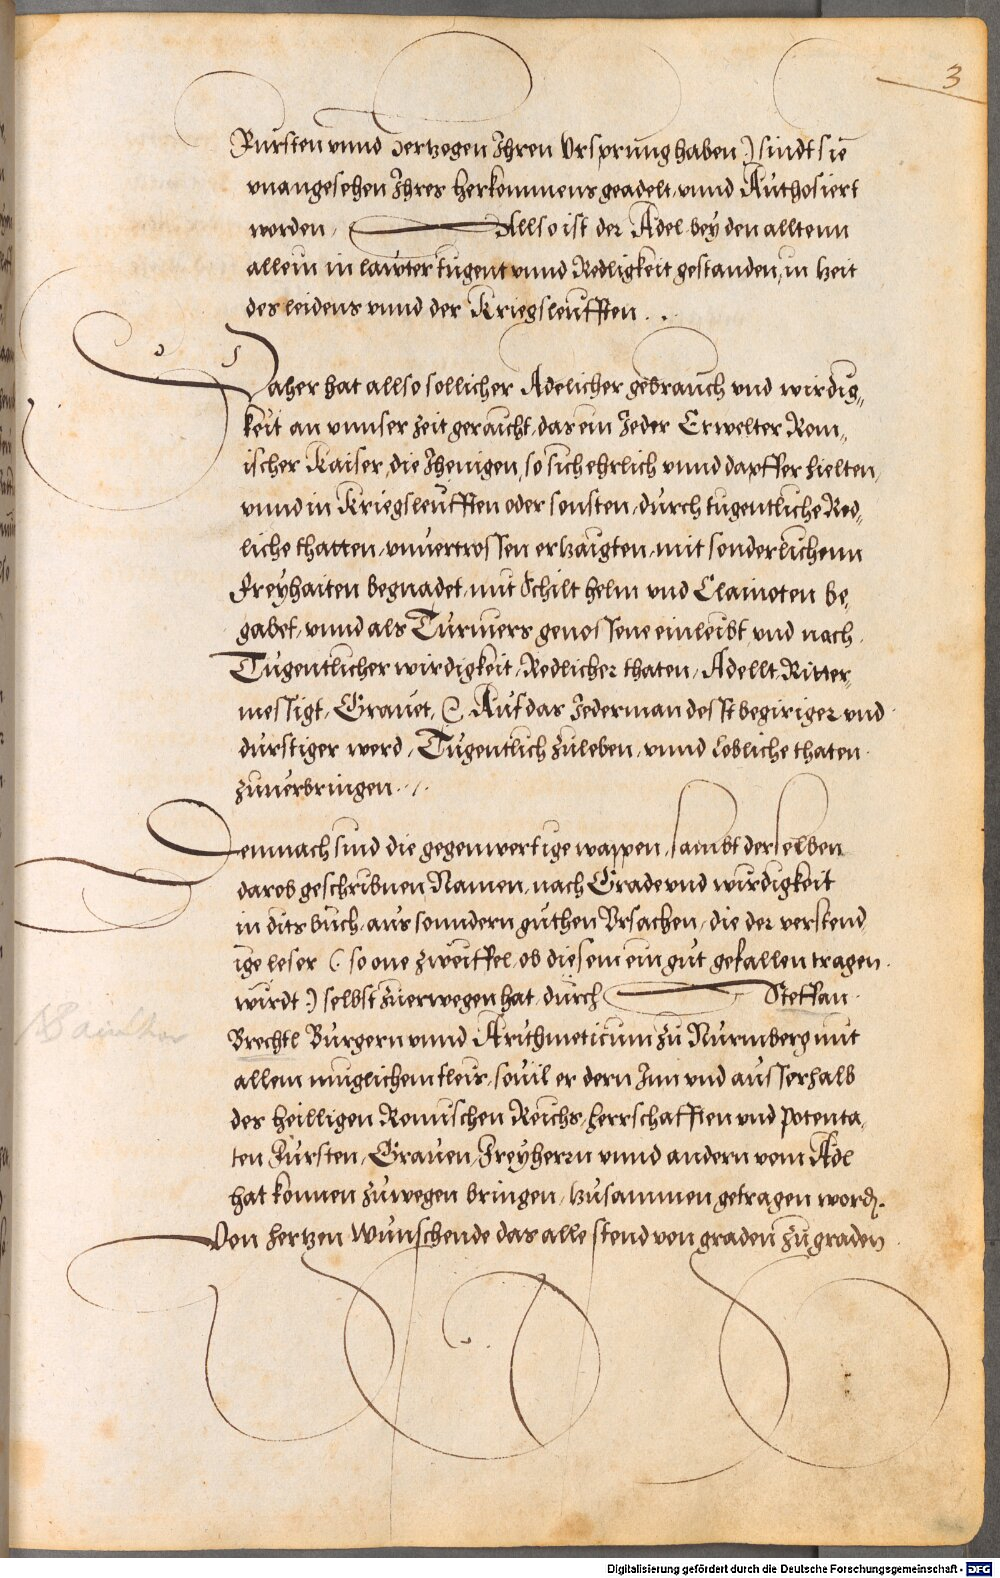 3
Fursten vnnd Hertzegen Ihren Vrsprung haben :) sindt sie
vnangesehen Ihres herkommens geadelt, vnnd Authosiert
worden, Allso ist der Adel bey den alltenn
allein in lauter tugent vnnd Redligkeit gestanden, in Zeit
des leidens vnnd der Kriegsleufften.
Daher hat allso sollicher Adelicher gebrauch vnd wirdig„
keit an vnnser zeit geraicht, das ein Jeder Erwelter Rom„
ischer Kaiser, die Jhenigen, so sich ehrlich vnnd dapffer hielten,
vnnd in Kriegsleufften oder sonsten, durch tugentliche Red„
liche thatten, vnuertrossen erzaigten, mit sonderlichenn
Freyhaiten begnadet, mit Schilt helm vnd Clainoten be„
gabet, vnnd als Turniers genossene einleibt, vnd nach
Tugentlicher wirdigkeit, Redlicher thaten, Adellt, Ritter„
messigt, Grauet, Auf das Jederman dest begiriger vnd
durstiger werd, Tugentlich zuleben, vnnd Lobliche thaten
zuuerbringen.
Demnach sind die gegenwertige wappen, sambt derselben
darob geschribnen Namen, nach Grade vnd wirdigkeit
in dits buch, aus sonndern guthen Vrsachen, die der verstend
ige leser (: so one zweiffel, ob diesem ein gut gefallen tragen
wirdt :) selbst zuerwegen hat, durch Steffan
Brechtl Burgern vnnd Arithmeticum zu Nurmberg mit
allem muglichem fleis, souil er dern Inn vnd ausserhalb
des heilligen Romischen Reichs, herrschafften vnd Potenta„
ten Fursten, Grauen, Freyherrn vnnd andern vom Adl
hat konnen zuwegen bringen, zusammen getragen word.
Von hertzen Wunschende das alle stend von graden zu graden
Digitalisierung gefördert durch die Deutsche Forschungsgemeinschaft - DFG